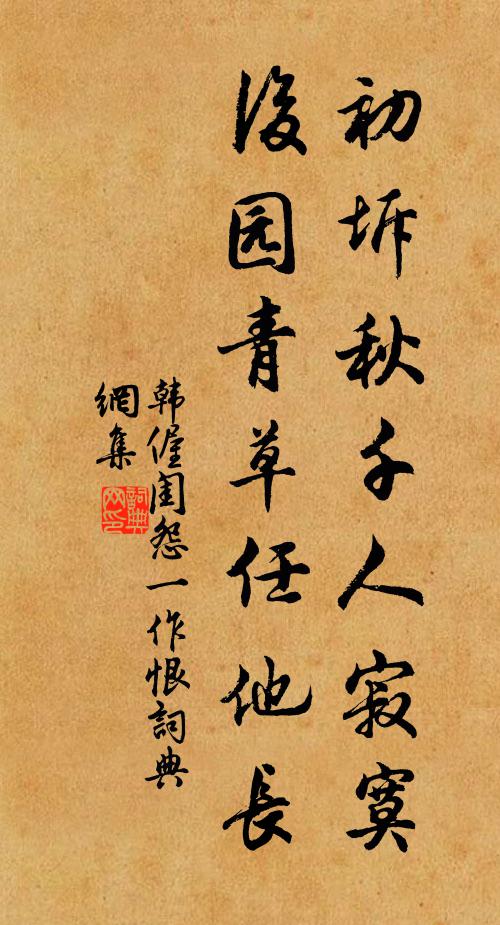 初坼秋千人寂寞
後园青草任他長
韩偓闺怨一作恨詞典
網集
詞典网印